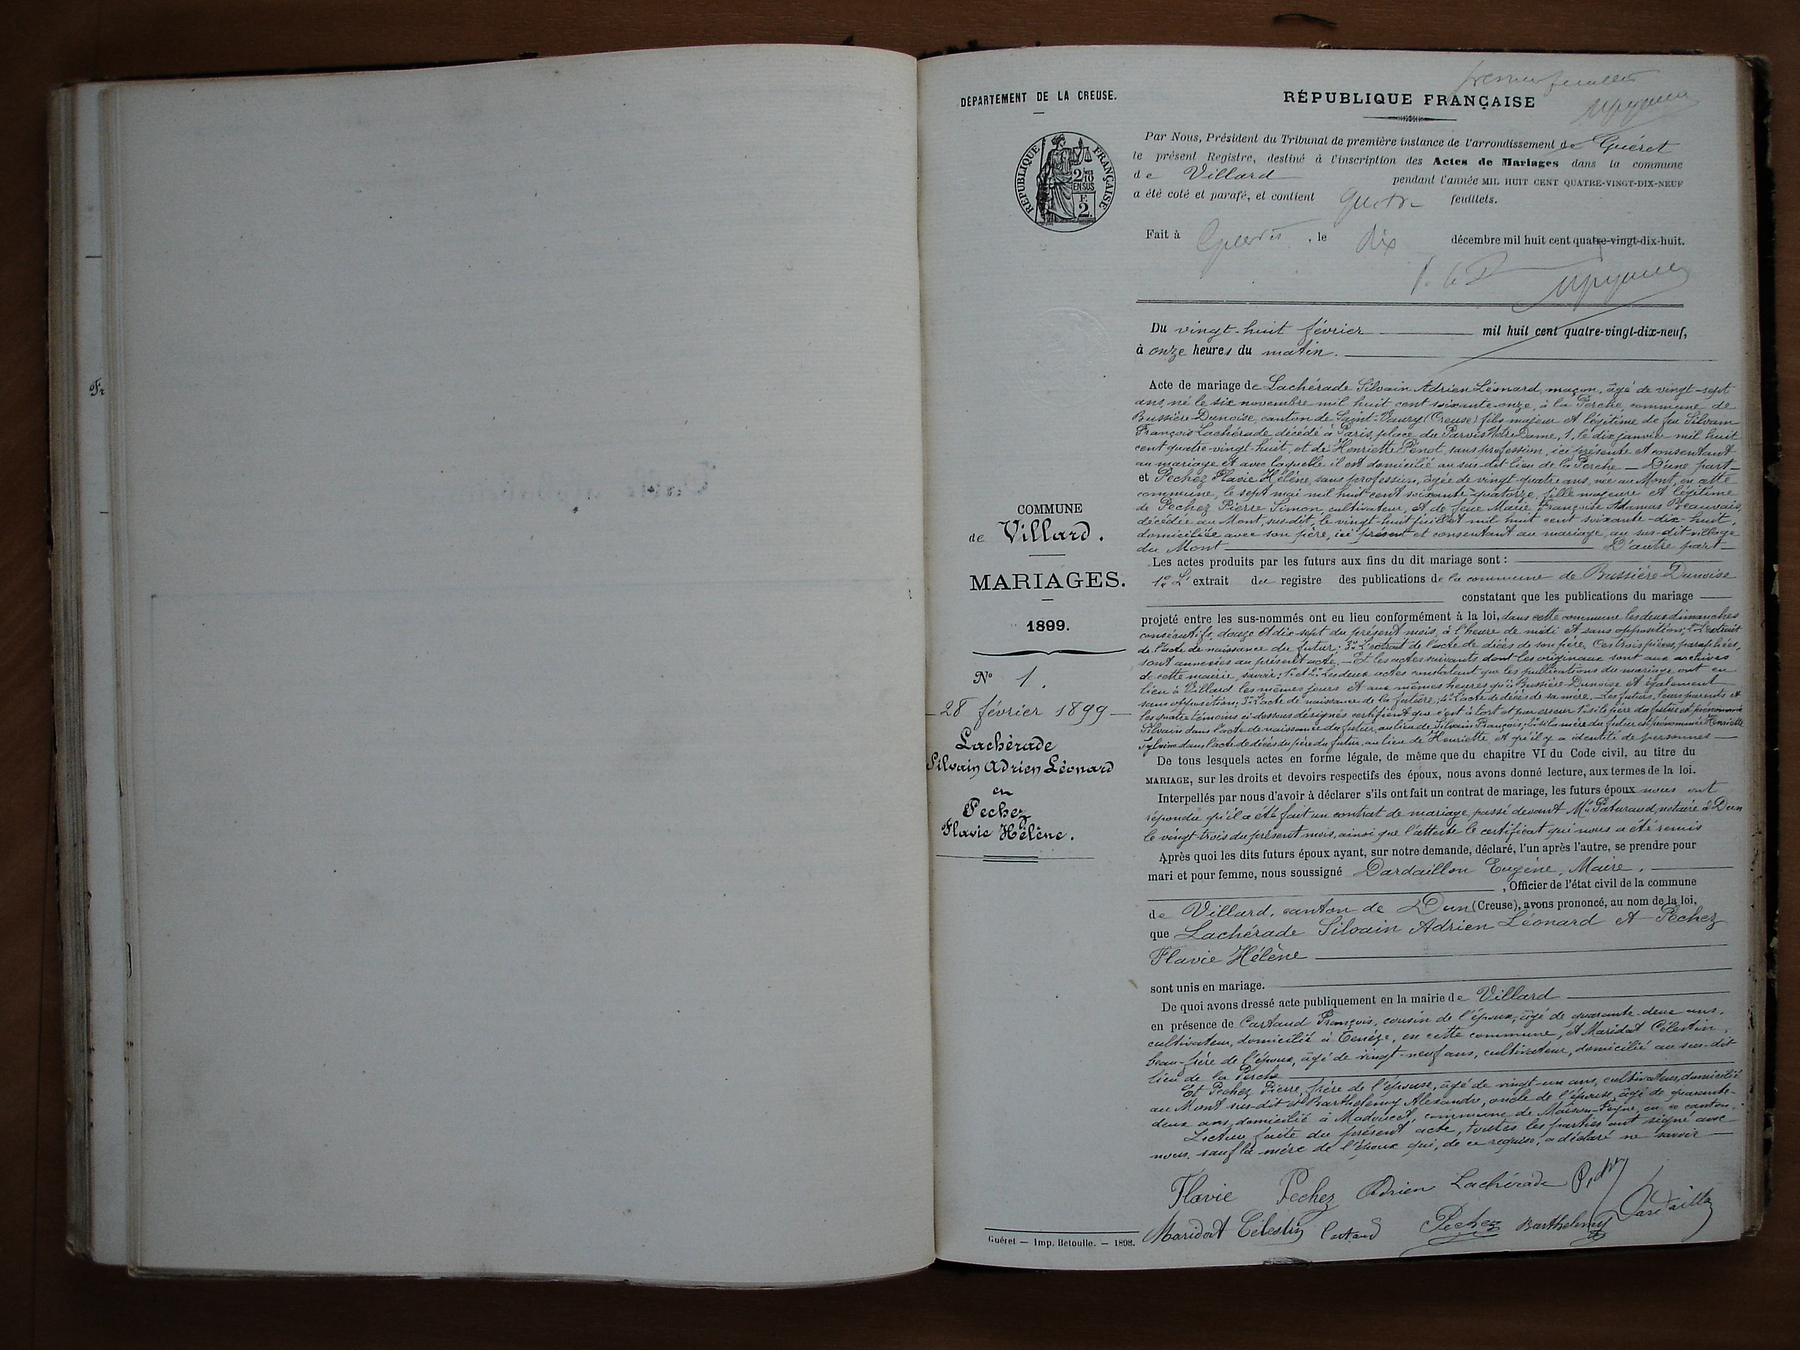 Fr
DÉPARTEMENT DE LA CREUSE.
RÉPUBLIQUE FRANÇAISE
RÉPUBLIQUE FRANÇAISE
2/10
EN SUS
F.
2.
Par Nous, Président du Tribunal de première instance de l'arrondissement de Guéret
le présent Registre, destiné à l'inscription des Actes de Mariages dans la commune
de Villard pendant l'année MIL HUIT CENT QUATRE-VINGT-DIX-NEUF
a été coté et parafé, et contient feuillets.
Fait à Guéret, le dix décembre mil huit cent quatre-vingt-dix-huit.
Du vingt-huit février mil huit cent quatre-vingt-dix-neuf,
à onze heures du matin.
COMMUNE
de Villard.
MARIAGES.
1899.
N° 1.
28 février 1899
Lachérade
Silvain Adrien Léonard
en
Pechez
Flavie Hélène.
Acte de mariage de Lachérade Silvain Adrien Léonard, maçon, âgé de vingt-sept
ans, né le six novembre mil huit cent soixante-onze, à la Perche, commune de
Bussière-Dunoise, canton de Saint-Vaury (Creuse) fils majeur et légitime de feu Silvain
François Lachérade décédé à Paris, place du Parvis Notre Dame, 1, le dix janvier mil huit
cent quatre-vingt huit, et de Henriette Penot, sans profession, ici présente et consentant
au mariage et avec laquelle il est domicilié au sus-dit lieu de la Perche — D'une part —
et Pechez Flavie Hélène, sans profession, âgée de vingt-quatre ans, née au Mont, en cette
commune, le sept mai mil huit cent soixante-quatorze, fille majeure et légitime
de Pechez Pierre Simon, cultivateur, et de feue Marie Françoise Beauvais,
décédée au Mont, sus-dit, le vingt-huit juillet mil huit cent soixante-dix-huit,
domiciliée avec son père, ici présent et consentant au mariage, au sus-dit village
du Mont D'autre part
Les actes produits par les futurs aux fins du dit mariage sont :
1° L'extrait du registre des publications de la commune de Bussière-Dunoise
constatant que les publications du mariage
projeté entre les sus-nommés ont eu lieu conformément à la loi, dans cette commune les deux dimanches
consécutifs, douze et dix-sept du présent mois, à l'heure de midi et sans opposition; 2° L'extrait
de l'acte de naissance du futur; 3° L'extrait de l'acte de décès de son père. Ces trois pièces, paraphées,
sont annexées au présent acte. — Et les actes suivants dont les originaux sont aux archives
de cette mairie, savoir; 1° et 2° Les deux actes constatant que les publications du mariage ont eu
lieu à Villard les mêmes jours et aux mêmes heures qu'à Bussière-Dunoise et également
sans opposition; 3° L'acte de naissance de la future; 4° L'acte de décès de sa mère. — Les futurs, leurs parents et
les quatre témoins ci-dessous désignés certifient que c'est à tort et par erreur si le père du futur est prénommé
Silvain dans l'acte de naissance du futur, au lieu de Silvain François; si la mère du futur est prénommée Henriette
Sylvaine dans l'acte de décès du père du futur, au lieu de Henriette, et qu'il y a identité de personnes —
De tous lesquels actes en forme légale, de même que du chapitre VI du Code civil, au titre du
MARIAGE, sur les droits et devoirs respectifs des époux, nous avons donné lecture, aux termes de la loi.
Interpellés par nous d'avoir à déclarer s'ils ont fait un contrat de mariage, les futurs époux nous ont
répondu qu'il a été fait un contrat de mariage passé devant Me Paturaud, notaire à Dun
le vingt-trois du présent mois, ainsi que l'atteste le certificat qui nous a été remis
Après quoi les dits futurs époux ayant, sur notre demande, déclaré, l'un après l'autre, se prendre pour
mari et pour femme, nous soussigné Dardaillon Eugène, Maire,
, Officier de l'état civil de la commune
de Villard, canton de Dun (Creuse), avons prononcé, au nom de la loi,
que Lachérade Silvain Adrien Léonard et Pechez
Flavie Hélène
sont unis en mariage.
De quoi avons dressé acte publiquement en la mairie de Villard
en présence de Cartaud François, cousin de l'époux, âgé de quarante-deux ans,
cultivateur, domicilié à en cette commune, et Maridat Célestin,
beau-frère de l'époux, âgé de vingt-neuf ans, cultivateur, domicilié au sus-dit
lieu de la Perche
Et Pechez Pierre, frère de l'épouse, âgé de vingt-un ans, cultivateur, domicilié
au Mont sus-dit et Barthelemy Alexandre, oncle de l'épouse, âgé de quarante-
deux ans, domicilié à commune de Maison-Feyne, en ce canton.
Lecture faite du présent acte, toutes les parties ont signé avec
nous, sauf la mère de l'époux qui, de ce requise, a déclaré ne savoir
Flavie Pechez Adrien Lachérade
Maridat Célestin Cartaud Pechez Barthelemy Dardaillon
Guéret — Imp. Betoulle. — 1898.